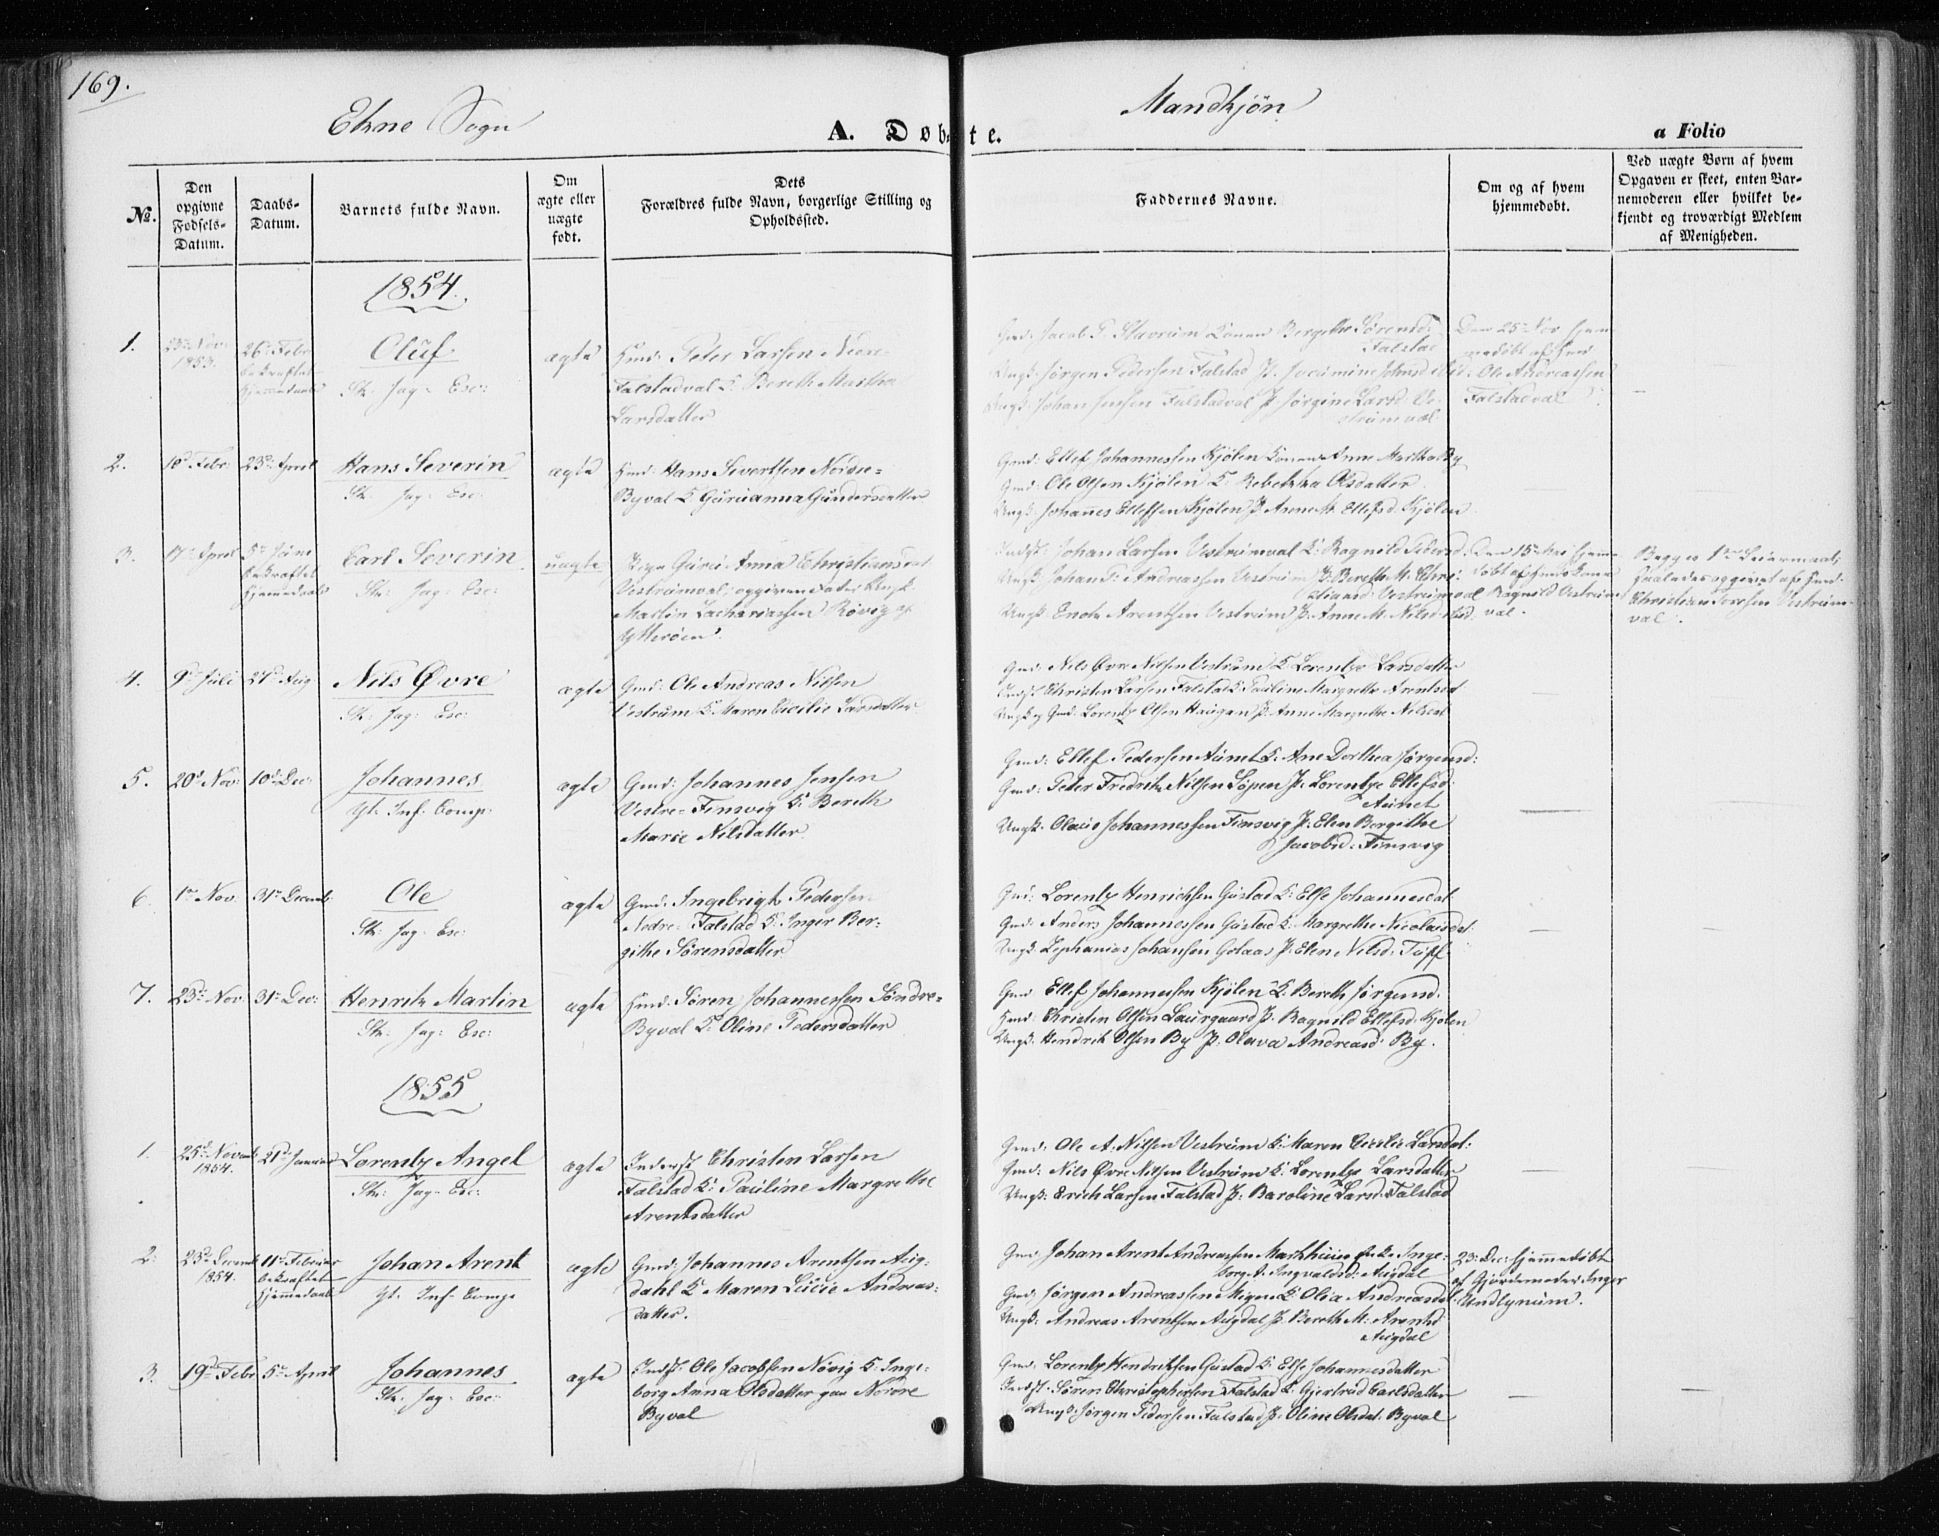 169.
Ekne Sogn
A. Døbte.
Mandkjøn
a Folio
No.
Den opgivne Fødsels-Datum.
Daabs-Datum.
Barnets fulde Navn.
Om ægte eller uægte født.
Dets Forældres fulde Navn, borgerlige Stilling og Opholdssted.
Faddernes Navne.
Om og af hvem hjemmedøbt.
Ved uægte Børn af hvem Opgaven er skeet, enten Barnemoderen eller hvilket bekjendt og troværdigt Medlem af Menigheden.
1854.
1.
25de Nov. 1853.
26de Febr
bekræftet
hjemmedaab
Oluf
Sk: Jag: Esc:
ægte
Hmd: Peter Larsen Nedre
Falstadval K. Bereth Martha
Larsdatter
Falstad
Falstadval
Den 25de Nov hjem
medøbt af
Ole Andreassen
Falstadval
2.
18d Febr:
23de April
Hans Severin
Sk. Jag: Esc:
ægte
Hmd: Hans Sivertsen Nordre-
Byval K Guruanna Gundersdatter
Gmd: Ellef Johannessen Kjølen Konen Anne Martha By
Gmd: Ole Olsen Kjølen K. Rebekka Olsdatter
Ungk: Johannes Ellefsen Kjølen P. Arene M. Ellefsd. Kjølen
3.
17de April
5te Juni
bekræftet
hjemmedaab
Carl Severin
Sk: Jag: Esc:
uægte
Pige Guru Anna Christiansdat
Vestrumval; opgiven Fader Ungk.
Martin Zachariassen Røvig
Ytterøen.
Johan Larsen Vestrumval K: Ragnild Pedersd:
Ungk: Johan P. Andreassen Vestrum P. Bereth M. Chri-
stiansd: Vestrumval
Ungk: Enok Arentsen Vestrum P. Anne M. Nilsd.
døbt af
Ragnild Vestrum-
val.
Begges 1ste Leiermaal;
saaledes opgivet af
Christian Vestrum-
val.
4.
9de Juli
27d Aug
Nils Øvre
Sk: Jag: Esc:
ægte
Gmd: Ole Andreas Nilsen
Vestrum K. Maren Cicilie Larsdatter
Gmd: Nils Øvre Nilsen Vestrum K. Lorentze Larsdatter
Indst Christen Larsen Falstad K. Pauline Margrethe Arentsdat
Ungk og Gmd: Lorentz Olsen Haugan P. Anne Margrethe Nilsdat
5.
20d Nov:
10de Dec:
Johannes
Yt. Inf. Comp.
ægte
Gmd: Johannes Jensen
Vestre-Finsvig K. Bereth
Marie Nilsdatter.
Gmd: Ellef Pedersen Aunet K. Ane Dorthea Jørgensd:
Gmd: Peter Fredrik Nilsen P. Lorentze Ellefsd:
Aunet
Ungk. Olaus Johannessen Finsvig P. Elen Bergithe
Jacobsd. Finsvig
6.
1ste Nov.
31te Decemb
Ole
Sk: Jag: Esc:
ægte
Gmd: Ingebrigt Pedersen
Nedre-Falstad K. Inger Ber-
githe Sørensdatter
Gmd: Lorentz Henriksen Gustad K: Else Johannesdat
Gmd: Anders Johannessen Gustad K: Margrethe Nicolaisdat:
Ungk Zephanias Johansen Golaas P. Elen Nilsd: Tuff
7.
23de Nov.
31te Dec:
Henrik Martin
Sk: Jag: Esc:
ægte
Hmd: Søren Johannessen Søndre-
Byval K. Oline Pedersdatter
Gmd Ellef Johannessen Kjølen K. Bereth Jørgensd.
Hmd: Christen Olsen Laurgaard P. Ragnild Ellefsd: Kjølen
Ungk. Hendrik Olsen By P. Olava Andreasd By.
1855
1.
25de Novemb 1854.
21de Januar
Lorentz Angel
Sk: Jag: Esc:
ægte
Inderst Christen Larsen
Falstad K: Pauline Margrethe
Arentsdatter
Gmd: Ole A. Nilsen Vestrum K: Maren Cecilie Larsdat:
Gmd: Nils Øvre Nilsen Vestrum K: Lorentze Larsdatter
Ungk: Erich Larsen Falstad P: Baroline Larsd. Falstad
2.
23de Decemb 1854.
11te Februar
bekræftet
hjemmedaab
Johan Arent
Yt. Inf. Comp
ægte
Gmd: Johannes Arentsen Aug-
dahl K. Maren Lucie Andreas-
datter.
Gmd Johan Arent Andreassen Markhuus Enke Inge-
borg A. Ingvaldsd: Augdal
Gmd Jørgen Andreassen K. Olia Andreasdat
Ungk: Andreas Arentsen Augdal P. Bereth M. Arentsd
Augdal
23: Dec: hjemmedøbt
af Gjordemoder Inger
Undlynum.
3.
19de Febr
5te April
Johannes
Sk. Jag. Esc:
ægte
Indst: Ole Jacobsen Røvig K. Inge-
borg Anna Olsdatter paa Nordre
Byval
Gmd. Lorentz Hendriksen Gustad K: Else Johannesdatter
Indst. Søren Christophersen Falstad K. Gjertrud Carlsdatter
Ungk: Jørgen Pedersen Falstad P. Oline Olsdat. Byval